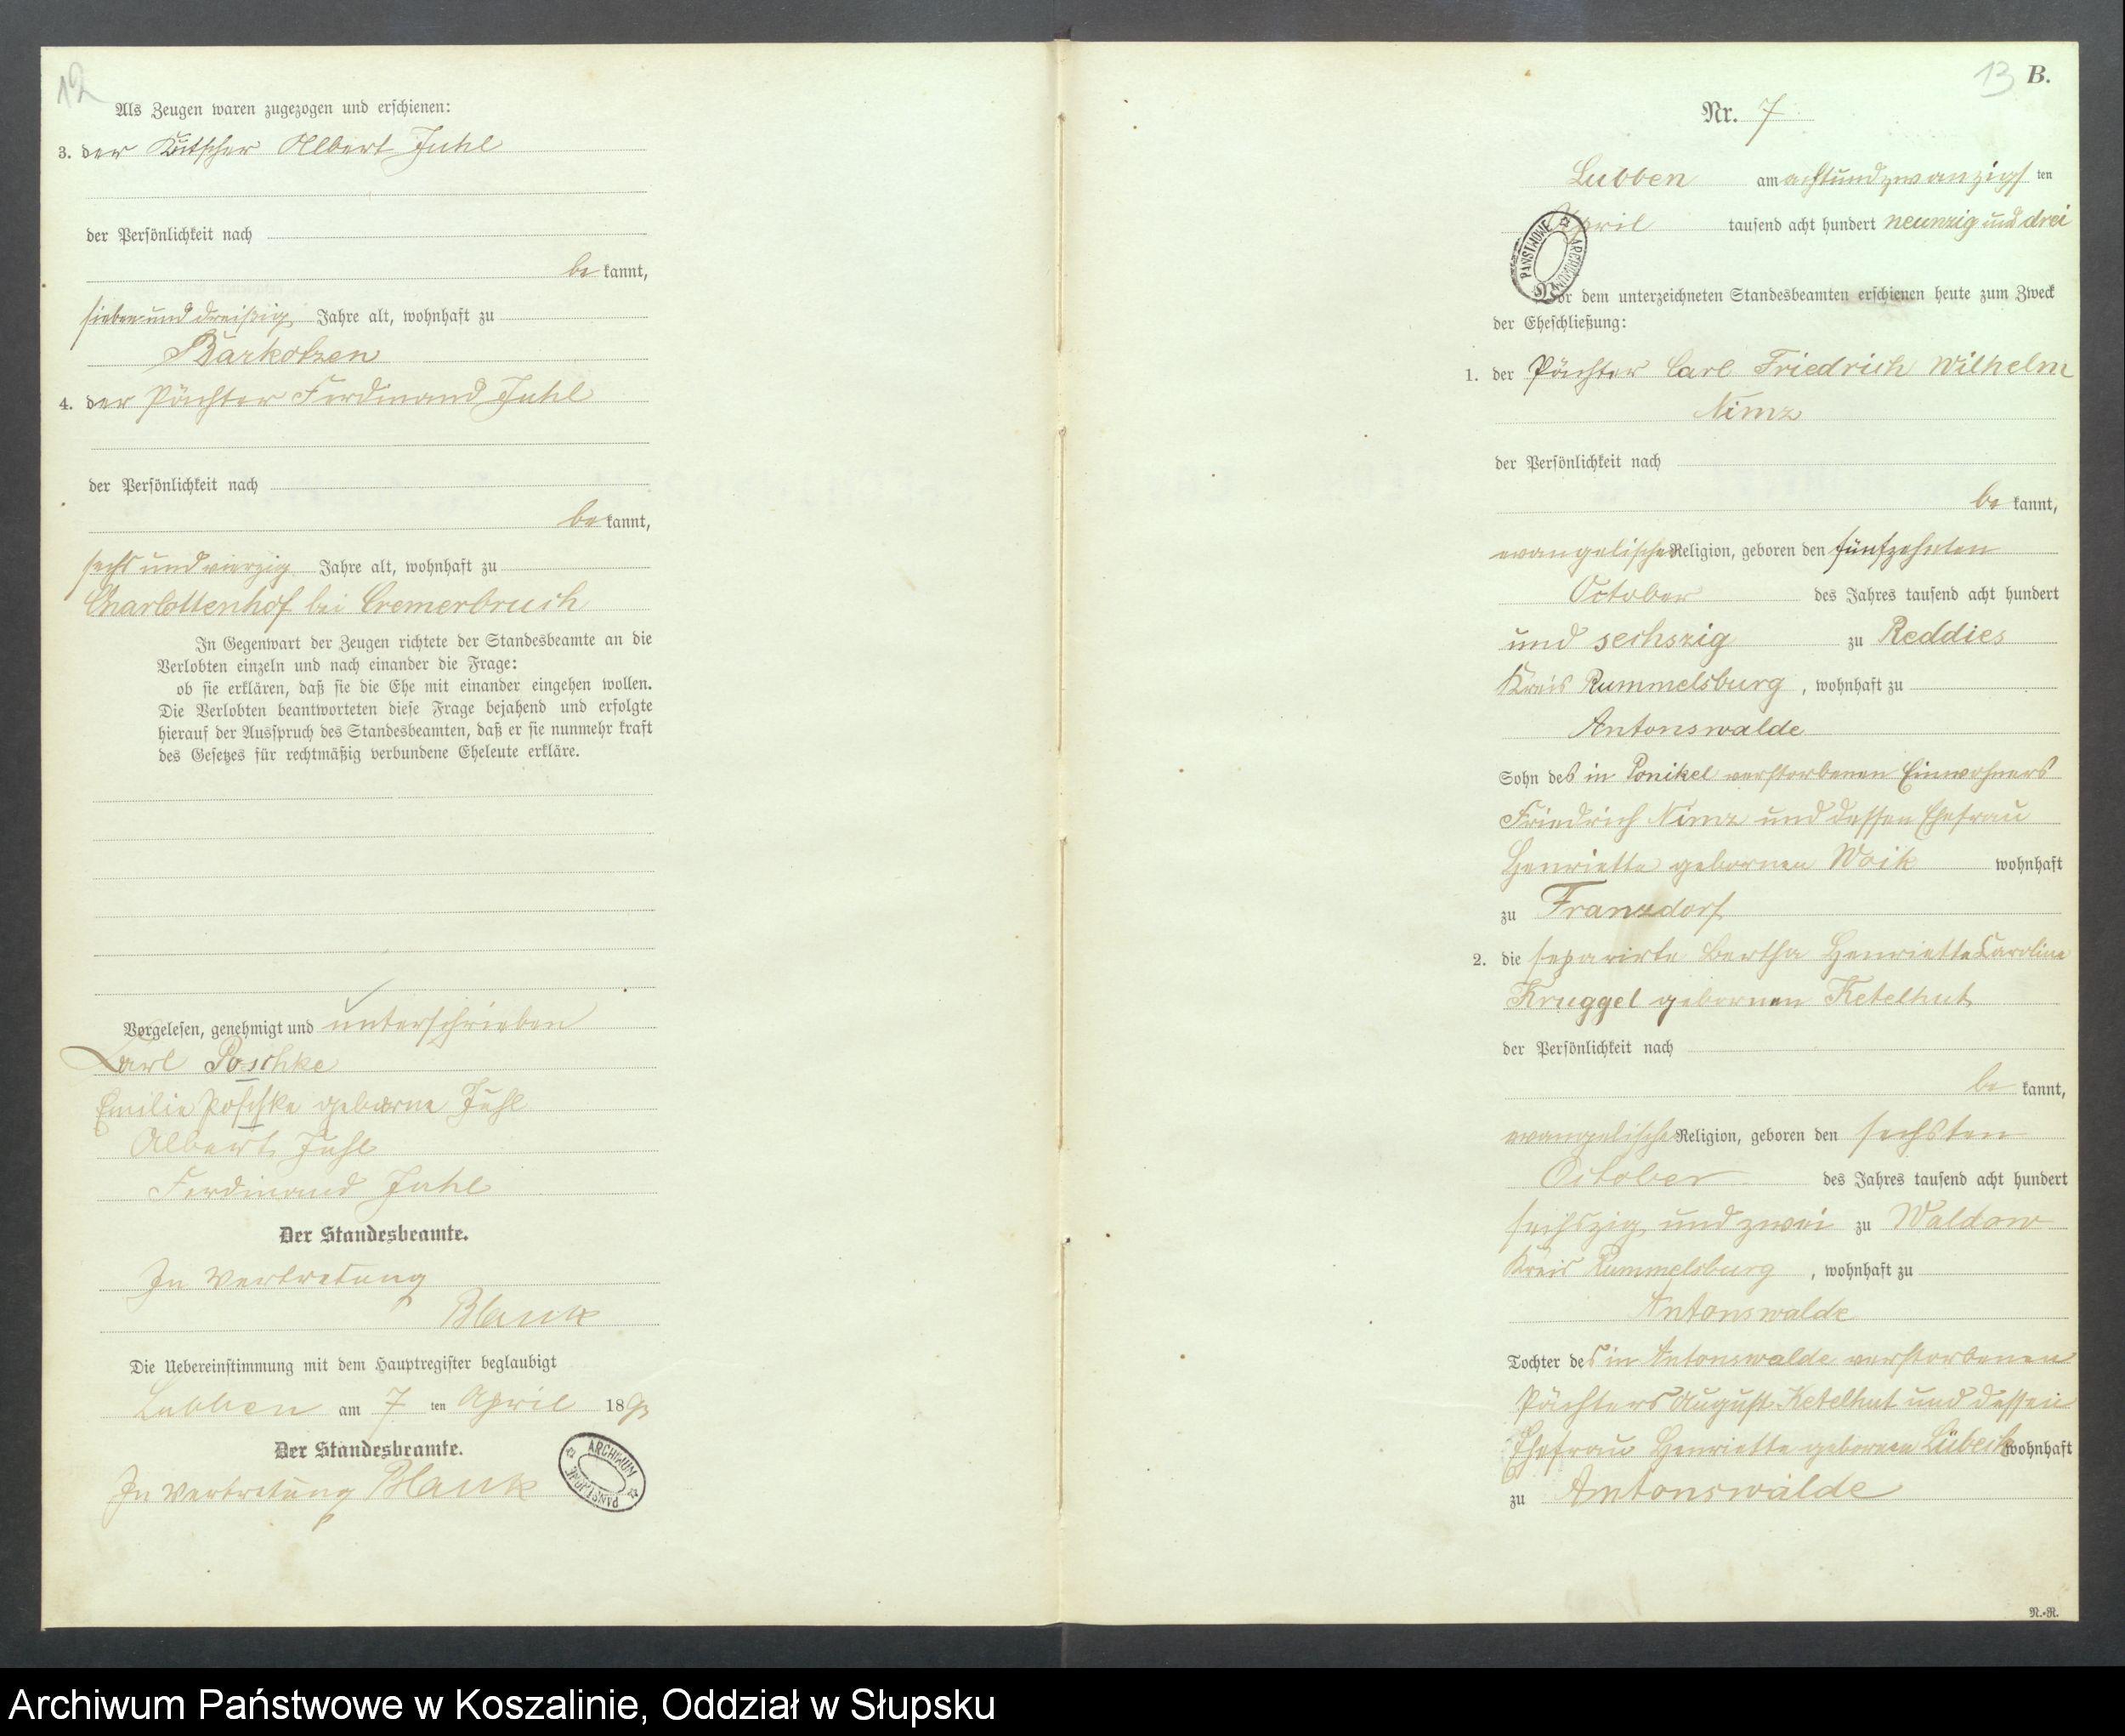 12
Als Zeugen waren zugezogen und erschienen:
3. der Kutscher Albert Juhl
der Persönlichkeit nach
be kannt,
sieben und dreißig Jahre alt, wohnhaft zu
Barkotzen
4. der Pächter Ferdinand Juhl
der Persönlichkeit nach
be kannt,
sechs und vierzig Jahre alt, wohnhaft zu
Charlottenhof bei Cremerbruch
In Gegenwart der Zeugen richtete der Standesbeamte an die
Verlobten einzeln und nach einander die Frage:
ob sie erklären, daß sie die Ehe mit einander eingehen wollen.
Die Verlobten beantworteten diese Frage bejahend und erfolgte
hierauf der Ausspruch des Standesbeamten, daß er sie nunmehr kraft
des Gesetzes für rechtmäßig verbundene Eheleute erkläre.
Vorgelesen, genehmigt und unterschrieben
Carl Poschke
Emilie Poschke geborne Juhl
Albert Juhl
Ferdinand Juhl
Der Standesbeamte.
In Vertretung
Blauk
Die Uebereinstimmung mit dem Hauptregister beglaubigt
Lubben am 7 ten April 1893
Der Standesbeamte.
In Vertretung Blauk
ARCHIWUM PAŃSTWOWE
13 B.
Nr. 7
Lubben am achtundzwanzigs ten
April tausend acht hundert neunzig und drei
PAŃSTWOWE ARCHIWUM
Vor dem unterzeichneten Standesbeamten erschienen heute zum Zweck
der Eheschließung:
1. der Pächter Carl Friedrich Wilhelm
Nimz
der Persönlichkeit nach
be kannt,
evangelischer Religion, geboren den fünfzehnten
October des Jahres tausend acht hundert
und sechszig zu Reddies
Kreis Rummelsburg , wohnhaft zu
Antonswalde
Sohn des in Ponikel verstorbenen Einwohners
Friedrich Nimz und dessen Ehefrau
Henriette gebornen Woik wohnhaft
zu Franzdorf
2. die separirte Bertha Henriette Caroline
Kruggel gebornen Ketelhut
der Persönlichkeit nach
be kannt,
evangelischer Religion, geboren den sechsten
October des Jahres tausend acht hundert
sechszig und zwei zu Waldow
Kreis Rummelsburg , wohnhaft zu
Antonswalde
Tochter des in Antonswalde verstorbenen
Pächters August Ketelhut und dessen
Ehefrau Henriette gebornen Lübeck wohnhaft
zu Antonswalde
N.-R.
Archiwum Państwowe w Koszalinie, Oddział w Słupsku